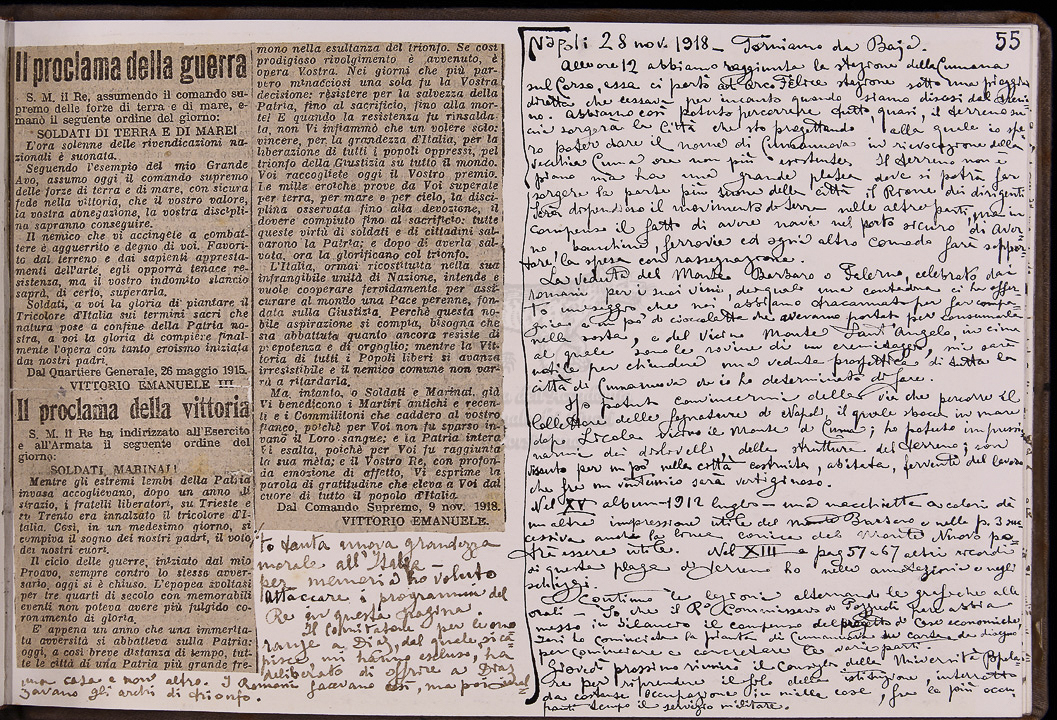 Il proclama della guerra
S. M. il Re, assumendo il comando su-
premo delle forze di terra e di mare, e-
manò il seguente ordine del giorno:
SOLDATI DI TERRA E DI MARE!
L'ora solenne delle rivendicazioni na-
zionali è suonata.
Seguendo l'esempio del mio Grande
Avo, assumo oggi il comando supremo
delle forze di terra e di mare, con sicura
fede nella vittoria, che il vostro valore,
la vostra abnegazione, la vostra discipli-
na sapranno conseguire.
Il nemico che vi accingete a combat-
tere è agguerrito e degno di voi. Favori-
to dal terreno e dai sapienti appresta-
menti dell'arte, egli opporrà tenace re-
sistenza, ma il vostro indomito slancio
saprà, di certo, superarla.
Soldati, a voi la gloria di piantare il
Tricolore d'Italia sui termini sacri che
natura pose a confine della Patria no-
stra, a voi la gloria di compiere final-
mente l'opera con tanto eroismo iniziata
dai nostri padri.
Dal Quartiere Generale, 26 maggio 1915.
VITTORIO EMANUELE III.
Il proclama della vittoria
S. M. il Re ha indirizzato all'Esercito
e all'Armata il seguente ordine del
giorno:
SOLDATI, MARINAI!
Mentre gli estremi lembi della Patria
invasa accoglievano, dopo un anno di
strazio, i fratelli liberatori, su Trieste e
su Trento era innalzato il tricolore d'I-
talia. Così, in un medesimo giorno, si
compiva il sogno dei nostri padri, il voto
dei nostri cuori.
Il ciclo delle guerre, iniziato dal mio
Proavo, sempre contro lo stesso avver-
sario, oggi si è chiuso. L'epopea svoltasi
per tre quarti di secolo con memorabili
eventi non poteva avere più fulgido co-
ronamento di gloria.
E' appena un anno che una immerita-
ta avversità si abbatteva sulla Patria:
oggi, a così breve distanza di tempo, tut-
te le città di una Patria più grande fre-
mono nella esultanza del trionfo. Se così
prodigioso rivolgimento è avvenuto, è
opera Vostra. Nei giorni che più par-
vero minacciosi una sola fu la Vostra
decisione: resistere per la salvezza della
Patria, fino al sacrificio, fino alla mor-
te! E quando la resistenza fu rinsalda-
ta, non Vi infiammò che un volere solo:
vincere, per la grandezza d'Italia, per la
liberazione di tutti i popoli oppressi, pel
trionfo della Giustizia su tutto il mondo.
Voi raccogliete oggi il Vostro premio.
Le mille eroiche prove da Voi superate
per terra, per mare e per cielo, la disci-
plina osservata fino alla devozione, il
dovere compiuto fino al sacrificio: tutte
queste virtù di soldati e di cittadini sal-
varono la Patria; e dopo di averla sal-
vata, ora la glorificano col trionfo.
L'Italia, ormai ricostituita nella sua
infrangibile unità di Nazione, intende e
vuole cooperare fervidamente per assi-
curare al mondo una Pace perenne, fon-
data sulla Giustizia. Perchè questa no-
bile aspirazione si compia, bisogna che
sia abbattuto quanto ancora resiste di
prepotenza e di orgoglio; mentre la Vit-
toria di tutti i Popoli liberi si avanza
irresistibile e il nemico comune non var-
rà a ritardarla.
Ma, intanto, o Soldati e Marinai, già
Vi benedicono i Martiri antichi e recen-
ti e i Commilitoni che caddero al vostro
fianco, poichè per Voi non fu sparso in-
vano il Loro sangue; e la Patria intera
Vi esalta, poichè per Voi fu raggiunta
la sua mèta; e il Vostro Re, con profon-
da emozione di affetto, Vi esprime la
parola di gratitudine che eleva a Voi dal
cuore di tutto il popolo d'Italia.
Dal Comando Supremo, 9 nov. 1918.
VITTORIO EMANUELE.
to tanta nuova grandezza
morale all'Italia
per memoria ho voluto
attaccare i programmi del
Re in questa pagina.
Il Comitato per le ono
ranze a Diaz, del quale, si ca
pisce, mi hanno escluso, ha
deliberato di offrire a Diaz
una casa e non altro. I Romani facevano così, ma poi
zavano gli archi di trionfo.
55
Napoli 28 nov. 1918 – Torniamo da Baja.
Alle ore 12 abbiamo raggiunta la stazione della Cumana
sul Corso, essa ci portò ad Arco Felice stazione sotto una pioggia
dirotta che cessava per incanto quando siamo discesi dal
no. Abbiamo così potuto percorrere tutto, quasi, il terreno su
cui sorgerà la Città che sto progettando alla quale io spe
ro poter dare il nome di Cumanuova in rievocazione della
vecchia Cuma ora non più esistente. Il terreno non è
piano ma ha una grande platea dove si potrà far
sorgere la parte più della città il Rione dei dirigenti
Sarà dispendioso il movimento di terra nelle altre parti, ma in
compenso il fatto di avere navi nel porto sicuro di Aver
no, banchine, ferrovie ed ogni altro comodo farà soppor
tare la spesa con rassegnazione.
La veduta del Monte Barbaro o Falerno, celebrato dai
romani per i suoi vini, del quale una contadina ci ha offer
to un saggio che noi abbiamo tracannato per far
a un po' di cioccolatte che avevamo portato per consumarle
nella sosta, e del vicino Monte Sant'Angelo, in cima
al quale sono le rovine di un romitaggio, mi sarà
utile per chiudere una veduta prospettica di tutta la
città di Cumanuova che io ho determinato di fare.
Ho potuto convincermi della via che percorre il
Collettore delle fognature di Napoli, il quale sbocca in mare
dopo Licola vicino il Monte di Cuma; ho potuto impressio
narmi dei dislivelli, della struttura del terreno; con
vissuto per un po' nella città costruita, abitata, fervente del lavoro
che fra un ventennio sarà vertiginoso.
Nel XV album – 1912 luglio – una macchietta a colori dà
un'altra impressione utile del Monte Barbaro e nella p. 3 suc
cessiva anche la linea comica del Monte Nuovo po
trà essere utile. Nel XIII a pag 57 a 67 altri ricordi
di questa plaga di terreno ho nelle annotazioni e negli
schizzi.
Continuo le lezioni alternando le grafiche alle
orali – So che il R.º Commissario di Pozzuoli abbia
messo in bilancio il compenso del progetto di Case economiche,
Ieri ho cominciata la pianta di Cumanuova su carta da disegno
per cominciare a concretare le varie parti.
Giovedì prossimo riunirò il Consiglio della Università Popola
re per riprendere il filo della istituzione, interrotto
da costante occupazione in mille cose, fra le più occu
panti tempo il servizio militare.